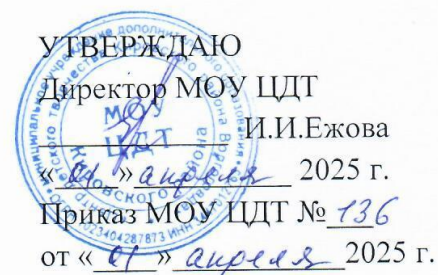 УТВЕРЖДАЮ
Директор МОУ ЦДТ
И.И.Ежова
«01» апреля 2025 г.
Приказ МОУ ЦДТ № 136
от «01» апреля 2025 г.
МОУ
ЦДТ